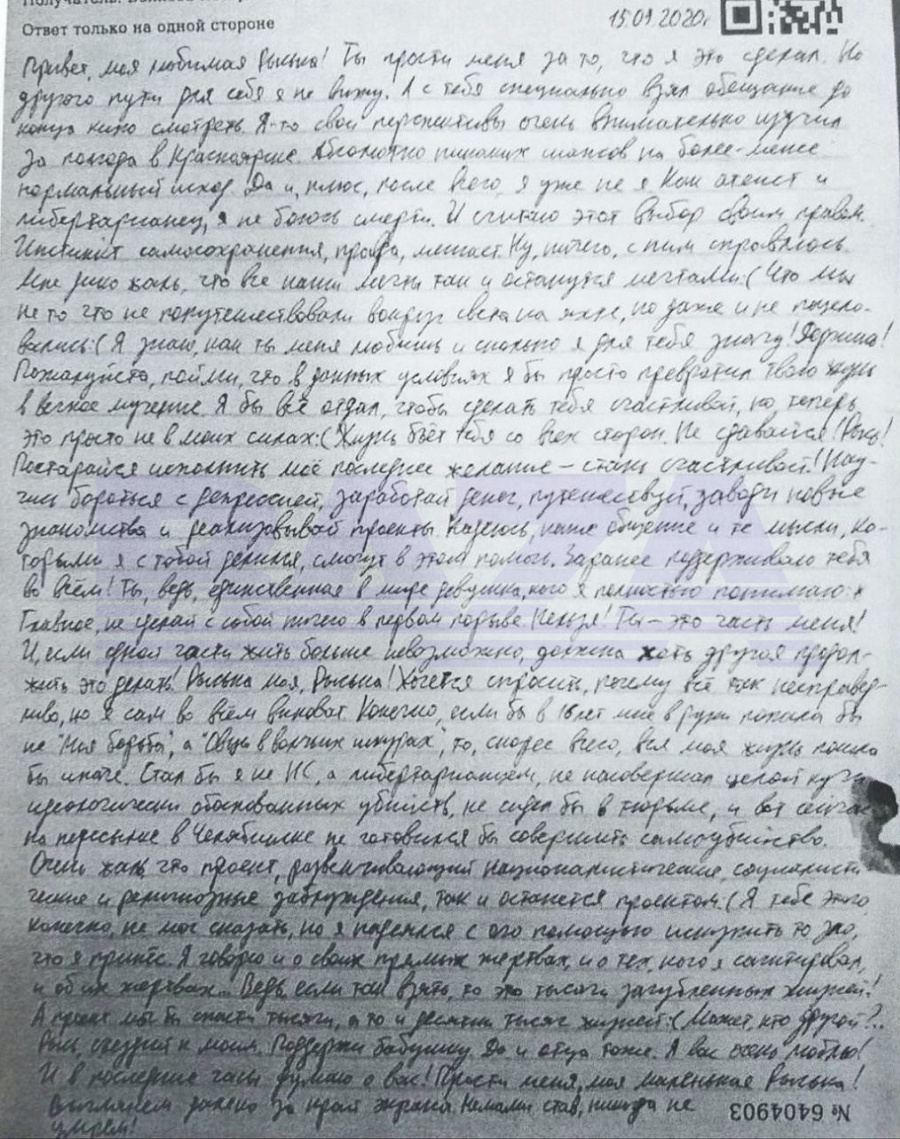 Получатель:
Ответ только на одной стороне
15.09.2020г.
Привет, моя любимая Рыська! Ты прости меня за то, что я это сделал. Но
другого пути для себя я не вижу. А с тебя специально взял обещание до
конца кино смотреть. Я-то свои перспективы очень внимательно изучил
за полгода в Красноярске. Абсолютно никаких шансов на более-менее
нормальный исход. Да и, плюс, после всего, я уже не я. Как атеист и
либертарианец, я не боюсь смерти. И считаю этот выбор своим правом.
Инстинкт самосохранения, правда, мешает. Ну, ничего, с ним справлюсь.
Мне жаль, что все наши мечты так и останутся мечтами:( Что мы
не то что не попутешествовали вокруг света на яхте, но даже и не поцело-
вались:( Я знаю, как ты меня любишь и сколько я для тебя значу!
Пожалуйста, пойми, что в данных условиях я бы просто превратил твою жизнь
в вечное мучение. Я бы всё отдал, чтобы сделать тебя счастливой, но, теперь
это просто не в моих силах:( Жизнь бьёт тебя со всех сторон. Не сдавайся!
Постарайся исполнить моё последнее желание – стань счастливой! Нау-
чись бороться с депрессией, заработай денег, путешествуй, заводи новые
знакомства и реализовывай проекты. Надеюсь, наше общение и те мысли, ко-
торыми я с тобой делился, смогут в этом помочь. Заранее поддерживаю тебя
во всём! Ты, ведь, единственная в мире девушка, кого я полностью понимаю:*
Главное, не сделай с собой ничего в первом порыве. Нельзя! Ты – это часть меня!
И, если одной части жить больше невозможно, должна хоть другая продол-
жить это делать! Рыська моя, Рыська! Хочется спросить, почему всё так несправед-
ливо, но я сам во всём виноват. Конечно, если бы в 16 лет мне в руки попала бы
не "Моя борьба", а "Овцы в волчьих шкурах", то, скорее всего, вся моя жизнь пошла
бы иначе. Стал бы я не НС, а либертарианцем, не насовершал целой кучи
идеологически обоснованных убийств, не сидел бы в тюрьме, и вот сейчас
на пересылке в Челябинске не готовился бы совершить самоубийство.
Очень жаль что проект, развенчивающий националистические, социалисти-
ческие и религиозные заблуждения, так и останется проектом:( Я тебе этого,
конечно, не мог сказать, но я надеялся с его помощью искупить то зло,
что я принёс. Я говорю и о своих прямых жертвах, и о тех, кого я сагитировал,
и об их жертвах... Ведь, если так взять, то это тысячи загубленных жизней!
А проект мог бы спасти тысячи, а то и десятки тысяч жизней:( Может, кто другой?..
Рысь, съезди к моим. Поддержи бабушку. Да и отца тоже. Я вас очень люблю!
И в последние часы думаю о вас! Прости меня, моя маленькая Рыська!
Выглянем далеко за край экрана. Нами став, никогда не
умрём!
№ 6404903
BAZA